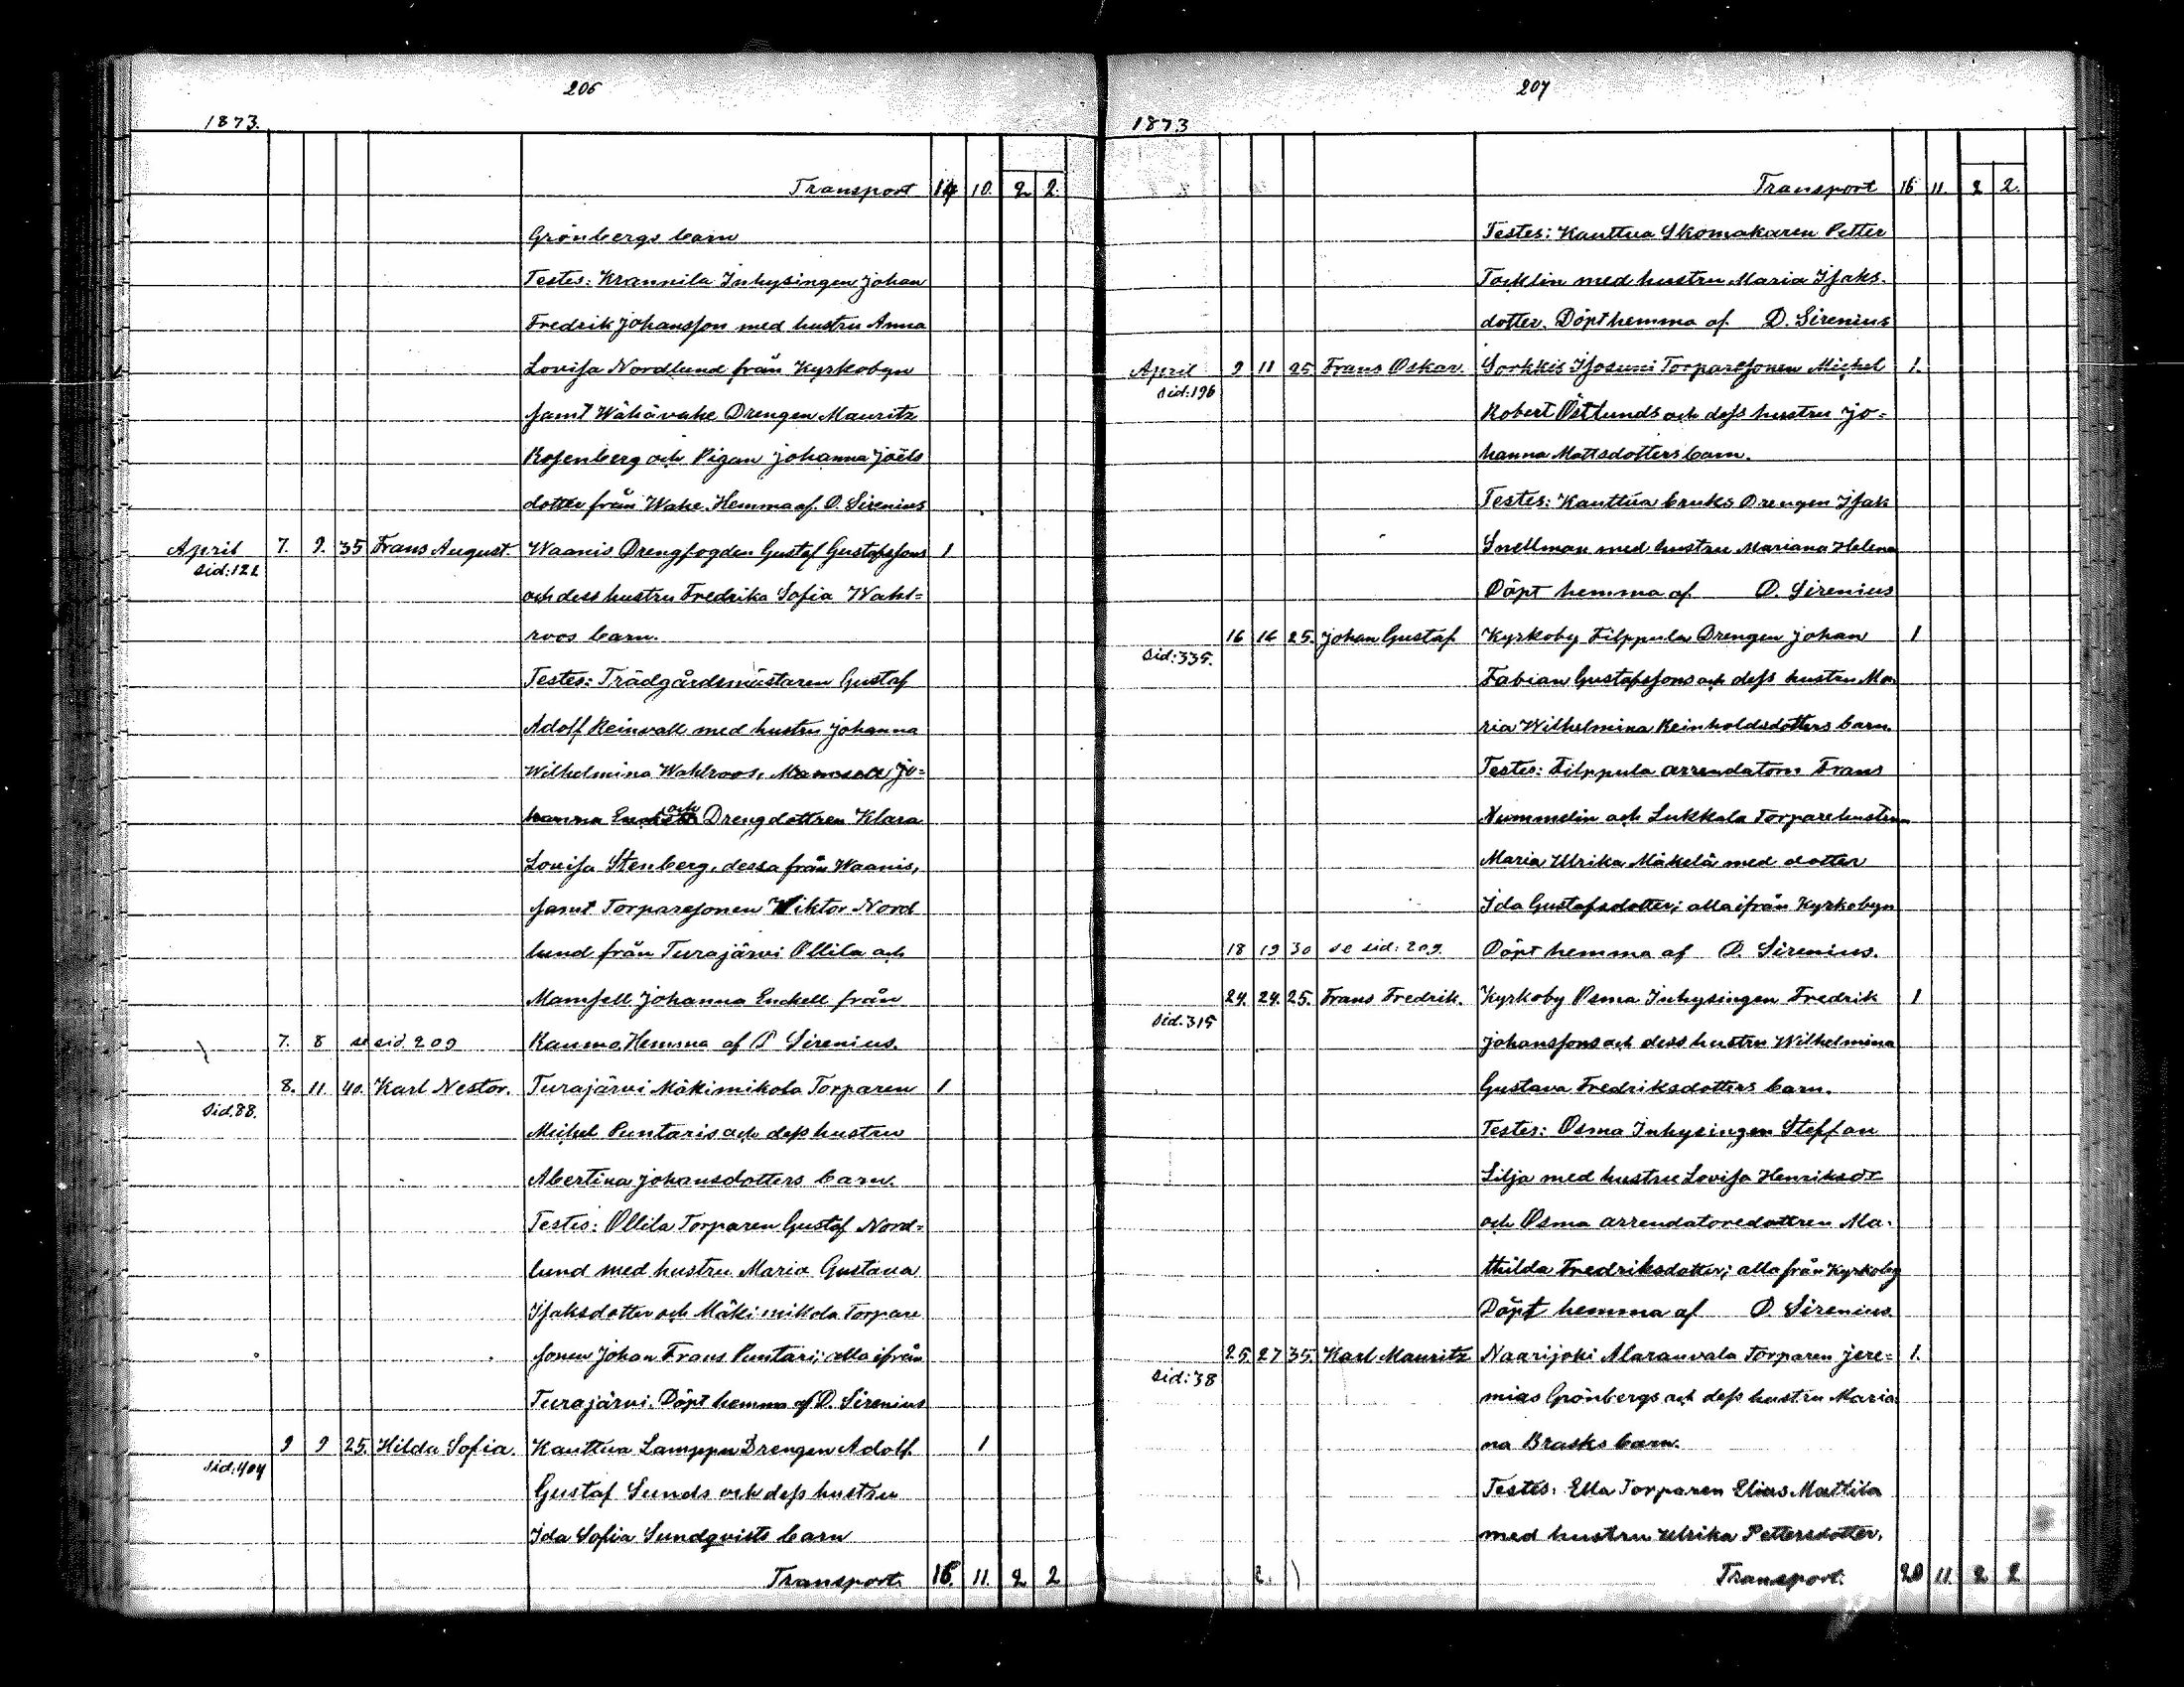 206
1873.
Transport 14 10. 2 2.
Grönbergs barn
Testes: Krannila Inhysingen Johan
Fredrik Johansson med hustru Anna
Lovisa Nordlund från Kyrkobyn
samt Wähävahe Drengen Mauritz
Rosenberg och Pigan Johanna Joëls
dotter från Wahe. Hemma af D. Sirenius
April 7. 9. 35 Frans August. Waanis Drengfogden Gustaf Gustafssons 1
sid: 121
och dess hustru Fredrika Sofia Wahl=
roos barn.
Testes: Trädgårdsmästaren Gustaf
Adolf Reinvall med hustru Johanna
Wilhelmina Wahlroos, Jo=
hanna och Drengdottren Klara
Lovisa Stenberg, dessa från Waanis,
samt Torparesonen Wiktor Nord
lund från Turajärvi Ollila och
Mamsell Johanna Enckell från
7. 8 se sid 209 Raumo. Hemma af D Sirenius.
8. 11. 40. Karl Nestor. Turajärvi Mäkimikola Torparen 1
Sid. 88.
Michel Puntaris och dess hustru
Abertina Johansdotters barn.
Testes: Ollila Torparen Gustaf Nord=
lund med hustru Maria Gustava
Isaksdotter och Mäkimikola Torpare
sonen Johan Frans Puntari; alla ifrån
Turajärvi. Döpt hemma af D. Sirenius
9 9 25. Hilda Sofia. Kauttua Lamppu Drengen Adolf 1
Sid: 404
Gustaf Sunds och dess hustru
Ida Sofia Sundqvists barn
Transport. 16. 11. 2 2
207
1873
Transport 16 11. 2 2.
Testes: Kauttua Skomakaren Petter
Tocklin med hustru Maria Isaks.
dotter. Döpt hemma af D. Sirenius
April 9 11 25 Frans Oskar. Sorkkis Isosuni Torparesonen Michel 1.
sid: 196
Robert Östlunds och dess hustru Jo=
hanna Mattsdotters barn.
Testes: Kauttua bruks Drengen Isak
Snellman med hustru Mariana Helena
Döpt hemma af D. Sirenius
16 16 25. Johan Gustaf Kyrkoby Filppula Drengen Johan 1
sid: 335.
Fabian Gustafssons och dess hustru Ma
ria Wilhelmina Reinholdsdotters barn.
Testes: Filppula arrendatorn Frans
Nummelin och Lukkala Torparehustrun
Maria Ulrika Mäkelä med dotter
Ida Gustafsdotter; alla ifrån Kyrkobyn
18 19 30 se sid: 209. Döpt hemma af D. Sirenius.
24. 24. 25. Frans Fredrik. Kyrkoby Osma Inhysingen Fredrik 1
Sid. 315
Johanssons och dess hustru Wilhelmina
Gustava Fredriksdotters barn.
Testes: Osma Inhysingen Steffan
Lilja med hustru Lovisa Henriksdr
och Osma arrendatoredottren Ma.
thilda Fredriksdotter; alla från Kyrkoby
Döpt hemma af D. Sirenius.
25. 27 35. Karl Mauritz Naarijoki Alarauvala Torparen Jere= 1.
sid: 38
mias Grönbergs och dess hustru Maria
na Brasks barn.
Testes: Ella Torparen Elias Mattila
med hustru Ulrika Pettersdotter.
Transport. 20 11. 2 2